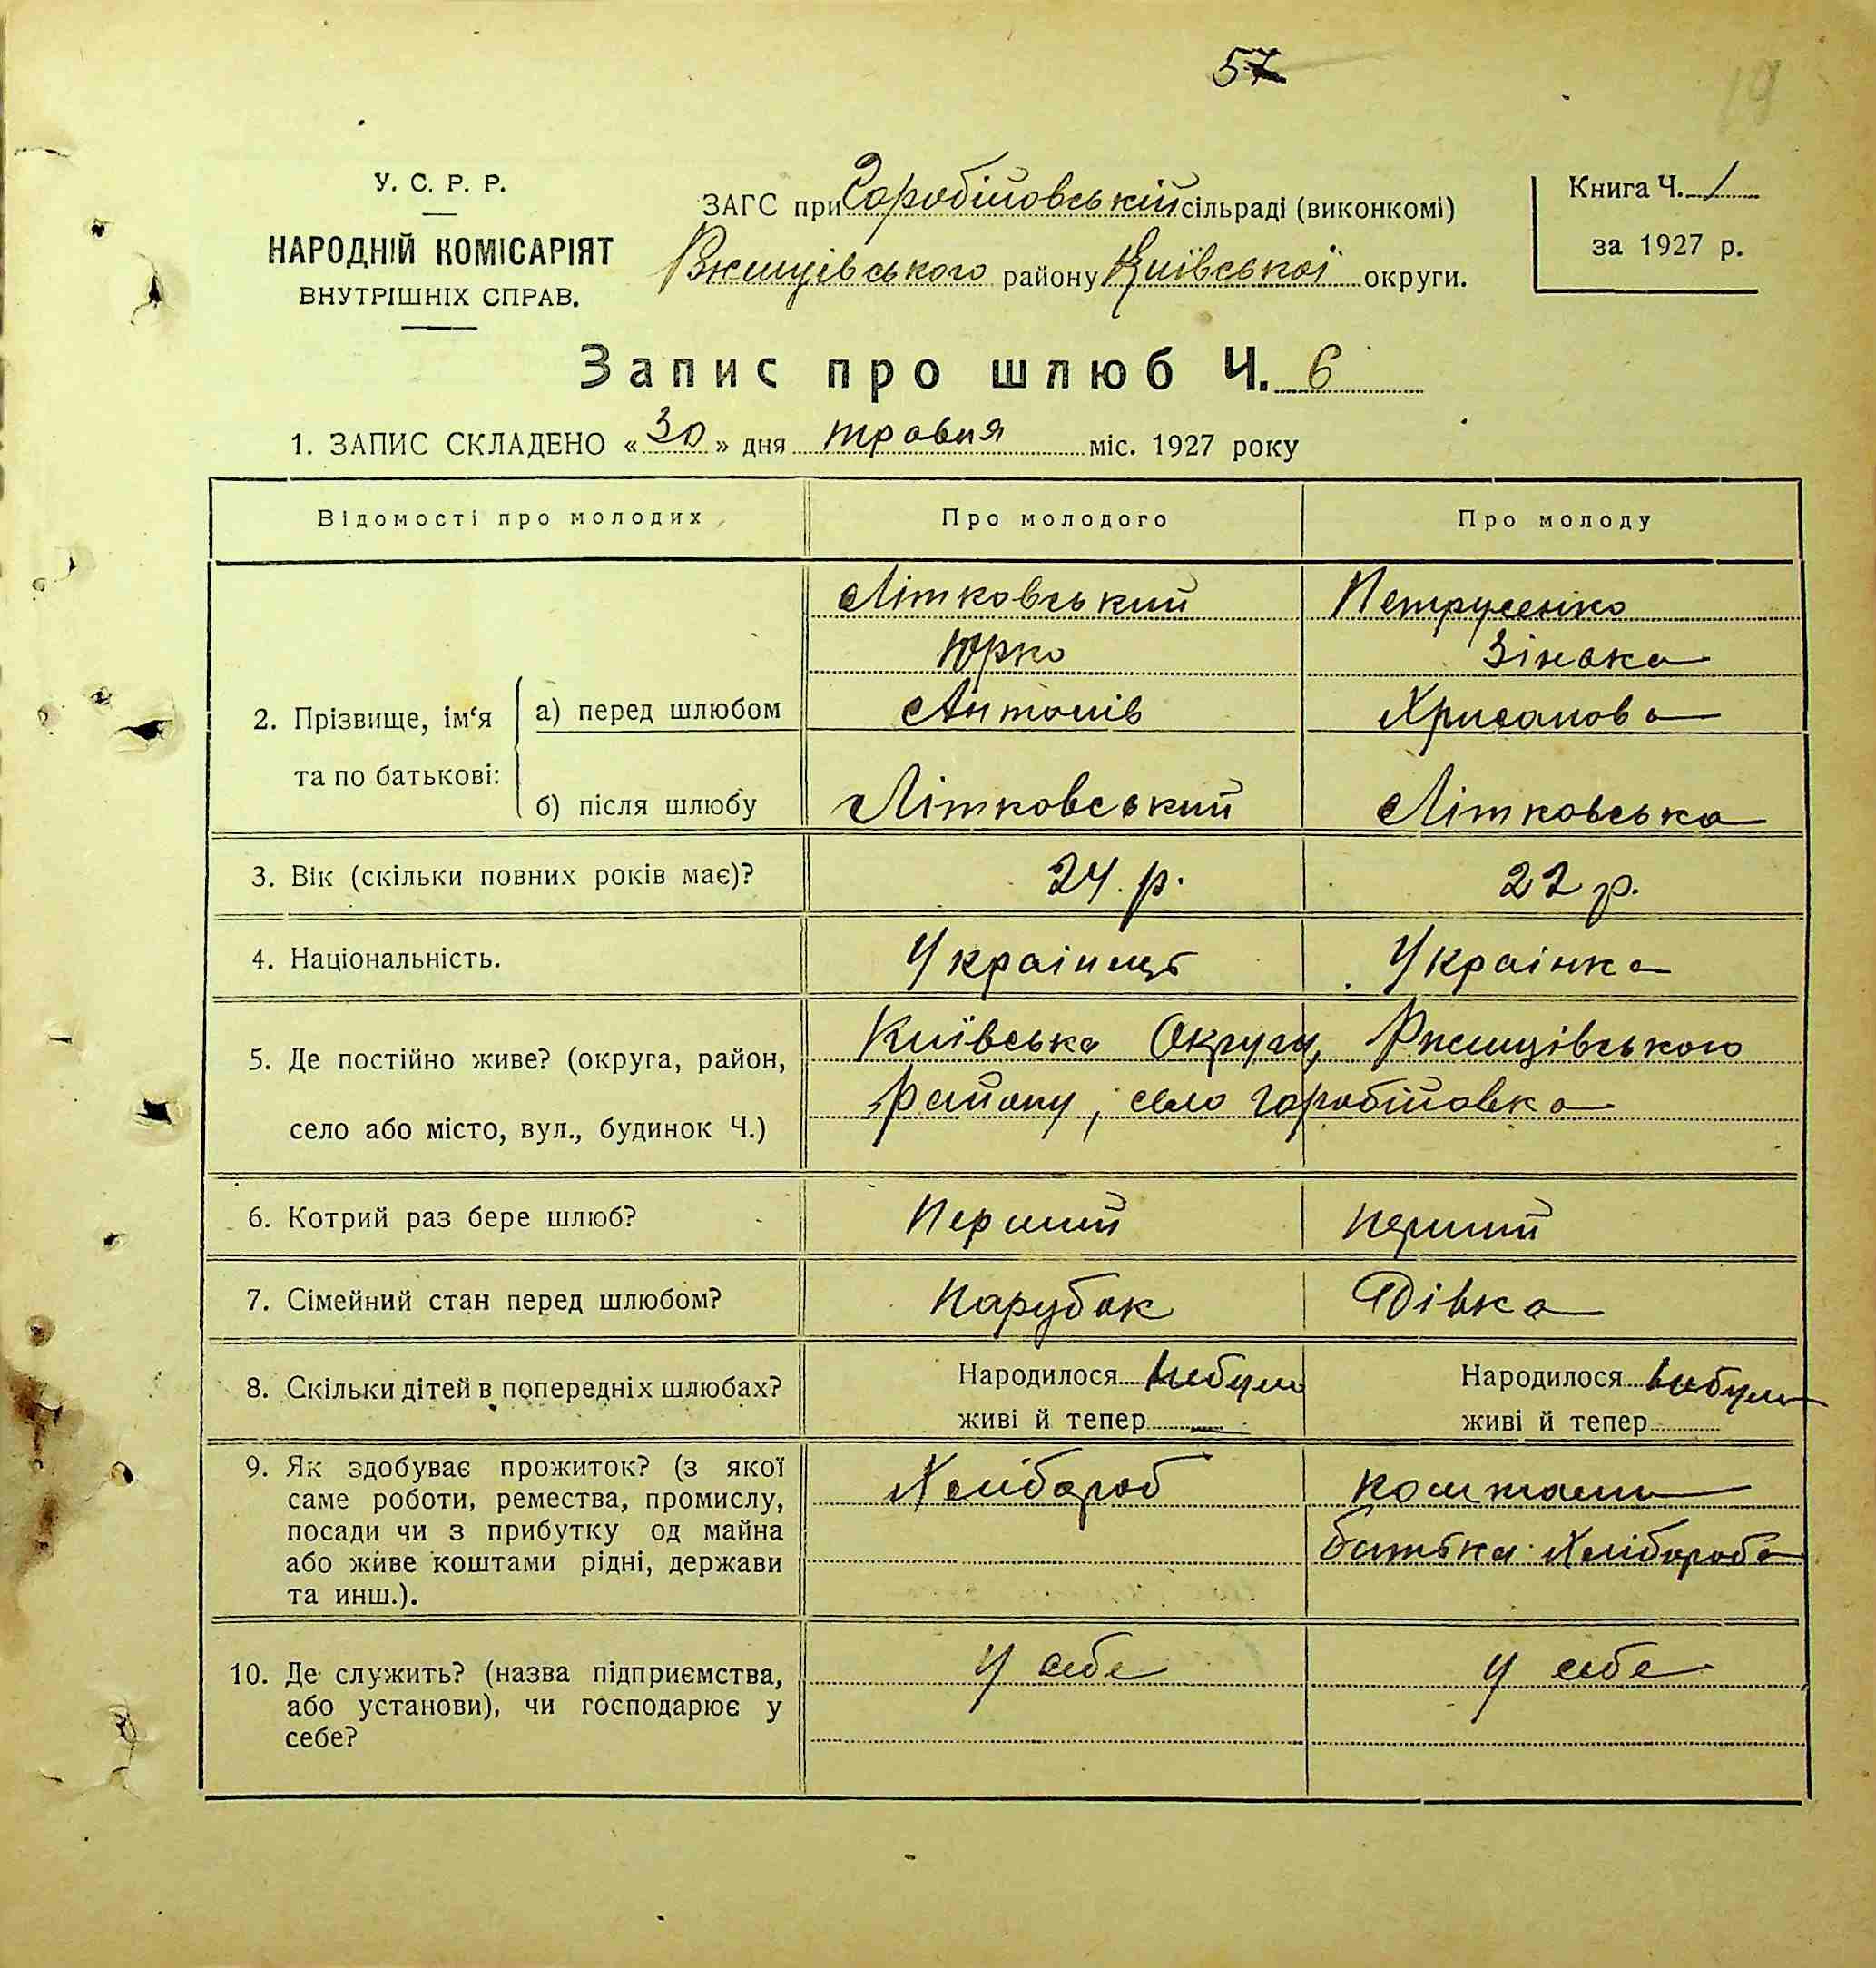 57
19
У. С. Р. Р.
НАРОДНІЙ КОМІСАРІЯТ
ВНУТРІШНІХ СПРАВ.
ЗАГС при Горобіювській сільраді (виконкомі)
Ржищівського району Київської округи.
Книга Ч. 1
за 1927 р.
Запис про шлюб Ч. 6
1. ЗАПИС СКЛАДЕНО «30» дня травня міс. 1927 року
Відомості про молодих
Про молодого
Про молоду
2. Прізвище, ім'я та по батькові:
а) перед шлюбом
Літковський
Юрко
Антонів
Петрусенко
Зінька
Хрисанова
б) після шлюбу
Літковський
Літковська
3. Вік (скільки повних років має)?
24. р.
22 р.
4. Національність.
Українець
Українка
5. Де постійно живе? (округа, район,
село або місто, вул., будинок Ч.)
Київська Округи, Ржищівського
Району, село Горобіювка
6. Котрий раз бере шлюб?
Перший
перший
7. Сімейний стан перед шлюбом?
Парубок
Дівка
8. Скільки дітей в попередніх шлюбах?
Народилося небуло
живі й тепер —
Народилося небуло
живі й тепер
9. Як здобуває прожиток? (з якої
саме роботи, ремества, промислу,
посади чи з прибутку од майна
або живе коштами рідні, держави
та инш.).
Хлібороб
коштами
батька хлібороба
10. Де служить? (назва підприємства,
або установи), чи господарює у
себе?
у себе
у себе